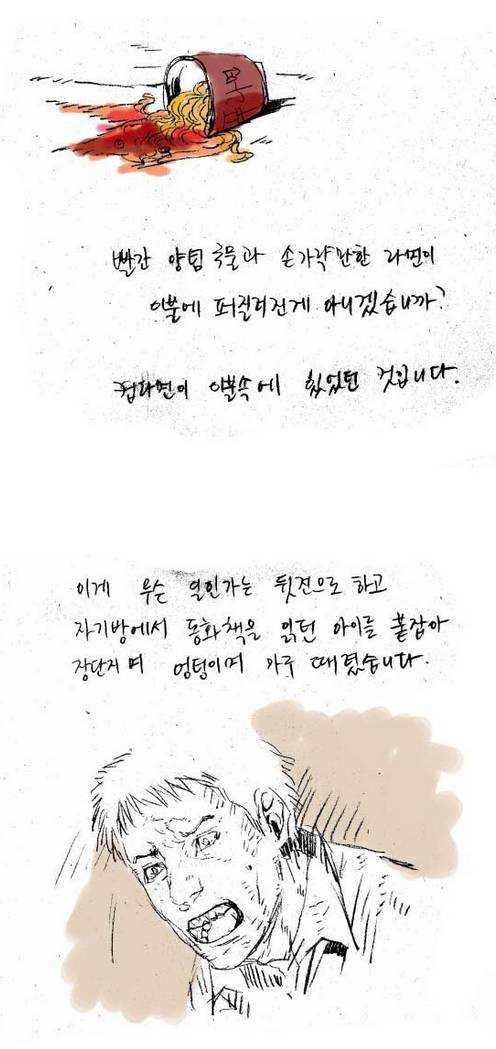 빨간 양념 국물과 손가락만한 라면이
이불에 퍼질러진게 아니겠습니까?
컵라면이 이불속에 있었던 것입니다.
이게 무슨 일인가는 뒷전으로 하고
자기방에서 동화책을 읽던 아이를 붙잡아
장단지며 엉덩이며 마구 때렸습니다.